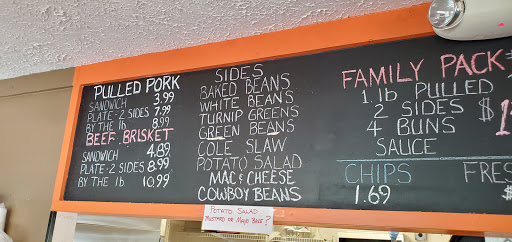 PULLED PORK
SANDWICH 3.99
PLATE-2 SIDES 7.99
BY THE lb 8.99
BEEF BRISKET
SANDWICH 4.89
PLATE-2 SIDES 8.99
BY THE lb 10.99
SIDES
BAKED BEANS
WHITE BEANS
TURNIP GREENS
GREEN BEANS
COLE SLAW
POTATO SALAD
MAC & CHEESE
COWBOY BEANS
FAMILY PACK
1 lb PULLED
2 SIDES $
4 BUNS
SAUCE
CHIPS
1.69
FRES
$
POTATO SALAD
MUSTARD OR MAYO BASE?